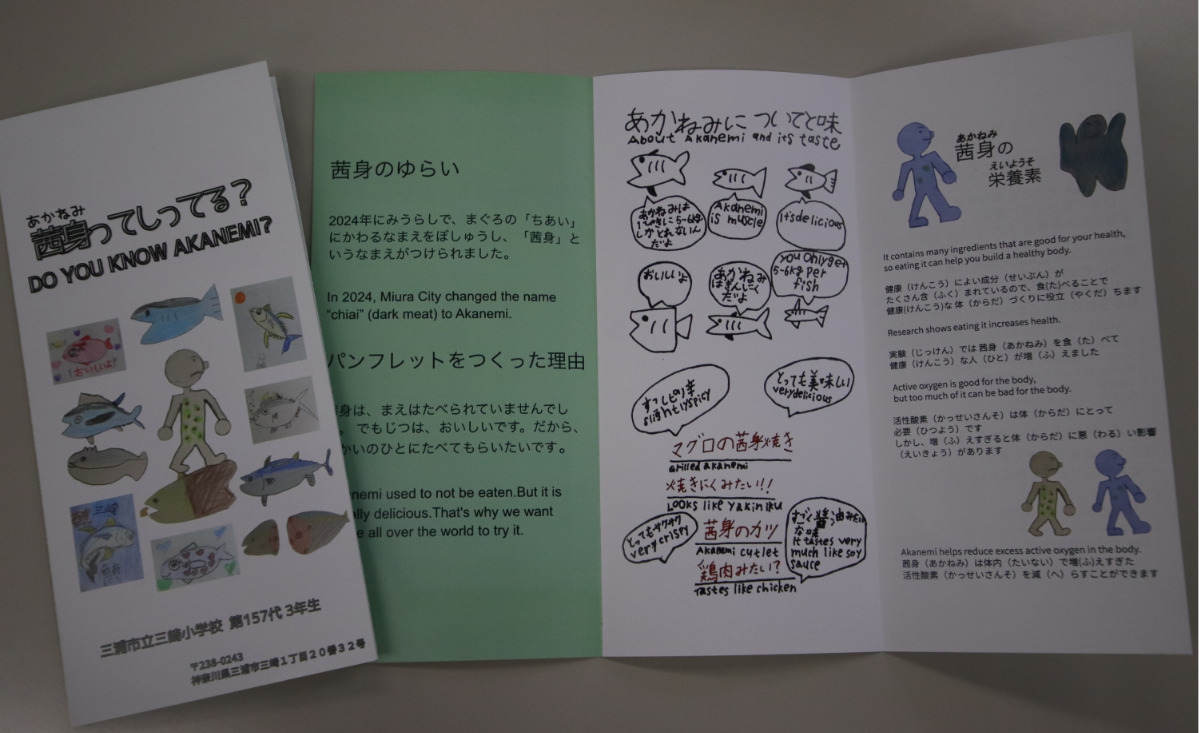 あかねみ
茜身ってしってる?
DO YOU KNOW AKANEMI?
おいしいよ
三崎
三浦市立三崎小学校 第157代 3年生
〒238-0243
神奈川県三浦市三崎1丁目20番32号
茜身のゆらい
2024年にみうらしで、まぐろの「ちあい」
にかわるなまえをぼしゅうし、「茜身」と
いうなまえがつけられました。
In 2024, Miura City changed the name
“chiai” (dark meat) to Akanemi.
パンフレットをつくった理由
身は、まえはたべられていませんでし
でもじつは、おいしいです。だから、
かいのひとにたべてもらいたいです。
nemi used to not be eaten.But it is
lly delicious.That's why we want
all over the world to try it.
あかねみについてと味
About Akanemi and its taste
あかねみは
1ぴきに5-6kg
しかとれないん
だよ
Akanemi
is muscle
It's delicious
おいしいよ
あかねみ
はきんにく
だよ
you only get
5-6kg per
fish
すこしピリ辛
slightly spicy
とっても美味しい
very delicious
マグロの茜身焼き
Grilled akanemi
焼きにくみたい!!
Looks like yakiniku
とってもサクサク
very crispy
茜身のカツ
Akanemi cutlet
鶏肉みたい?
Tastes like chicken
すごく醤油みたい
な味
It tastes very
much like soy
sauce
あかねみ
茜身の
えいようそ
栄養素
It contains many ingredients that are good for your health,
so eating it can help you build a healthy body.
健康(けんこう)によい成分(せいぶん)が
たくさん含(ふく)まれているので、食(た)べることで
健康(けんこう)な体(からだ)づくりに役立(やくだ)ちます
Research shows eating it increases health.
実験(じっけん)では茜身(あかねみ)を食(た)べて
健康(けんこう)な人(ひと)が増(ふ)えました
Active oxygen is good for the body,
but too much of it can be bad for the body.
活性酸素(かっせいさんそ)は体(からだ)にとって
必要(ひつよう)です
しかし、増(ふ)えすぎると体(からだ)に悪(わる)い影響
(えいきょう)があります
Akanemi helps reduce excess active oxygen in the body.
茜身(あかねみ)は体内(たいない)で増(ふ)えすぎた
活性酸素(かっせいさんそ)を減(へ)らすことができます